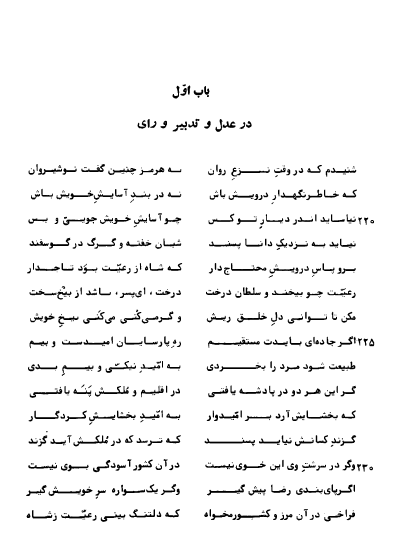 باب اوّل
در عدل و تدبیر و رای
شنیدم که در وقتِ نـزعِ روان به هرمز چنین گفت نوشیروان
که خاطرنگهدارِ درویش باش نه در بندِ آسایشِ خویش باش
۲۲۰ نیاساید اندر دیـارِ تـو کس چو آسایش خویش جوییّ و بس
نیاید به نزدیکِ دانا پسند شبان خفته و گرگ در گوسفند
برو پاسِ درویشِ محتاج دار که شاه از رعیّت بوَد تاجدار
رعیّت چو بیخند و سلطان درخت درخت، ای پسر، باشد از بیخْ سخت
مکن تا توانی دلِ خلق ریش وگرمی کُنی می کَنی بیخِ خویش
۲۲۵ اگر جاده‌ای بایدت مستقیم رهِ پارسایان امیدست و بیم
طبیعت شود مرد را بخردی به امّیدِ نیکیّ و بیمِ بدی
گر این هر دو در پادشه یافتی در اقلیم و مُلکش پَنَه یافتی
که بخشایش آرد بر امّیدوار به امّیدِ بخشایشِ کردگار
گزندِ کسانش نیاید پسند که ترسد که در مُلکش آید گزند
۲۳۰ وگر در سرشتِ وی این خوی نیست در آن کشور آسودگی بوی نیست
اگر پای‌بندی رضا پیش گیر وگر یک‌سواره سرِ خویش گیر
فراخی در آن مرز و کشور مخواه که دلتنگ بینی رعیّت ز شاه